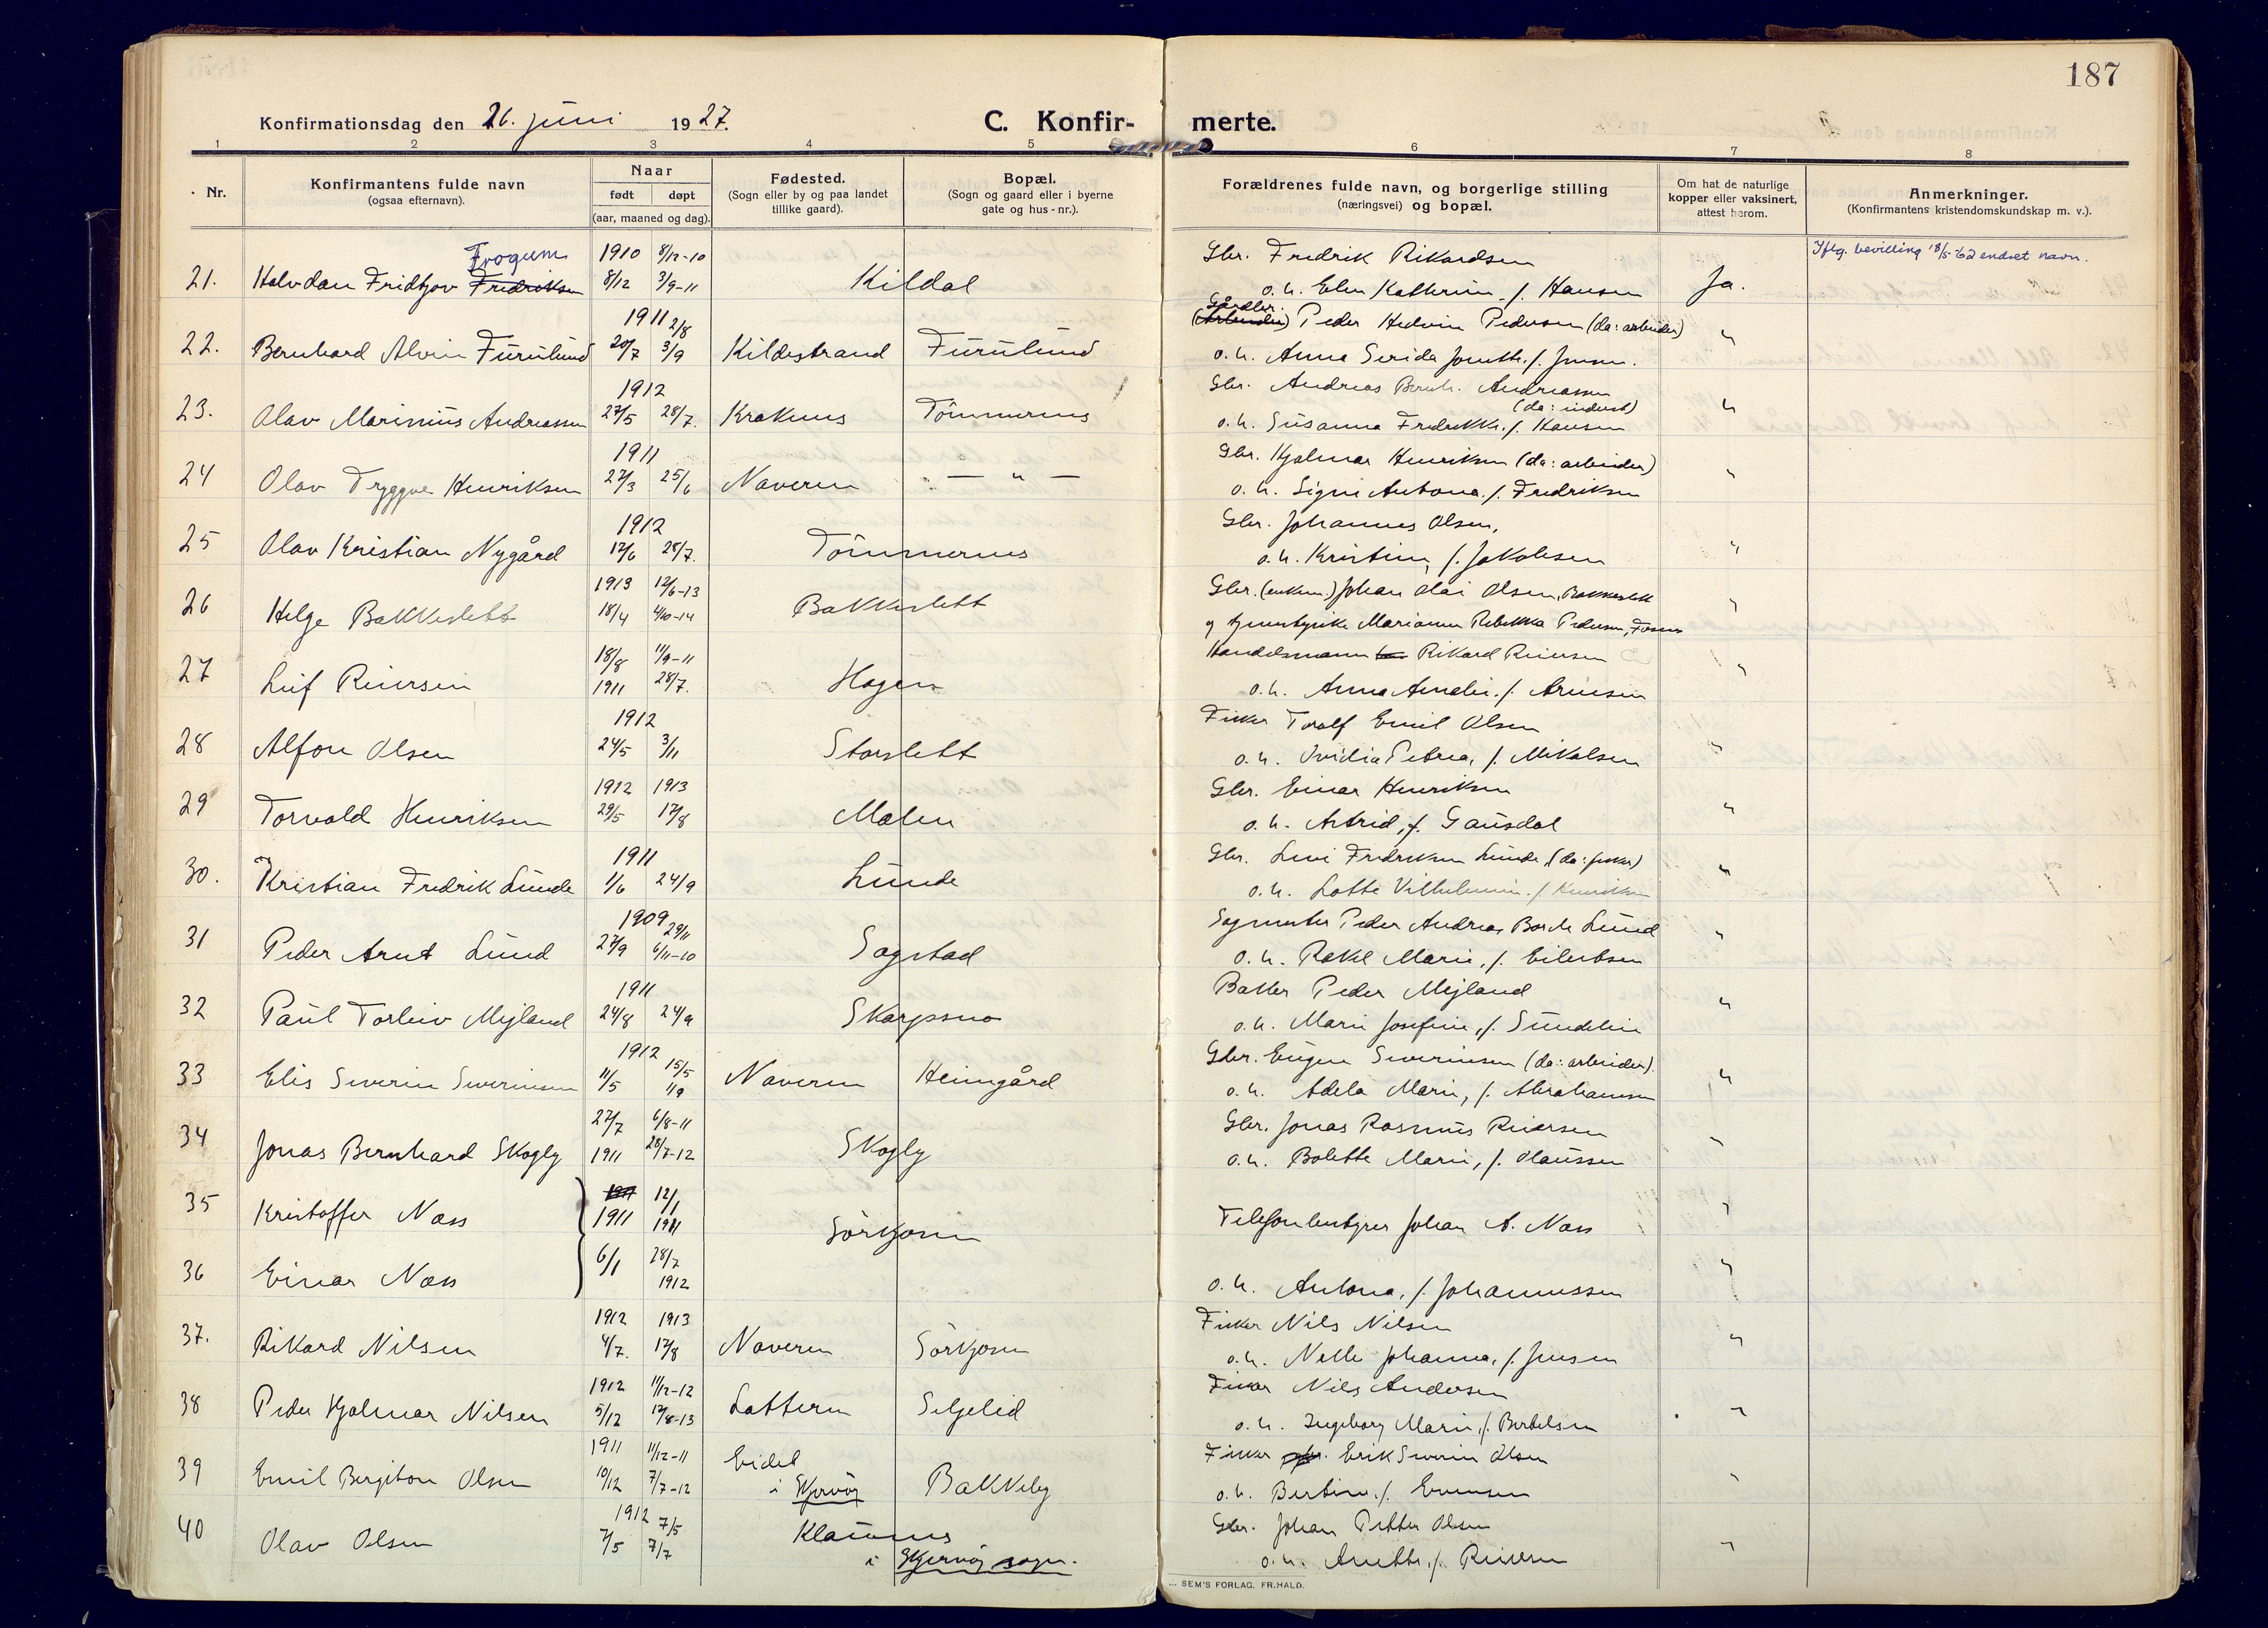 187
Konfirmationsdag den 26. juni 1927. C. Konfir- merte.
1 2 3 4 5 6 7 8
Nr. Konfirmantens fulde navn (ogsaa efternavn). Naar født døpt (aar, maaned og dag). Fødested. (Sogn eller by og paa landet tillike gaard). Bopæl. (Sogn og gaard eller i byerne gate og hus-nr.). Forældrenes fulde navn, og borgerlige stilling (næringsvei) og bopæl. Om hat de naturlige kopper eller vaksinert, attest herom. Anmerkninger. (Konfirmantens kristendomskundskap m. v.).
Frogum 1910 8/12-10 Gbr. Fredrik Rikardsen Iflg. bevilling 18/5-62 endret navn.
21. Halvdan Fridtjov Fredriksen 8/12 3/9-11 Kildal o.h. Elen Kathrine f. Hansen Ja.
1911 2/8 Gårdbr. (Arbeider) Peder Hedvin Pedersen (da: arbeider)
22. Bernhard Alvin Furulund 20/7 3/9 Kildestrand Furulund o.h. Anna Serida Jonette f. Jensen. "
1912 Gbr. Andreas Bernh. Andreassen
23. Olav Marinius Andreassen 27/5 28/7. Kraknes Tömmernes (da: inderst) o.h. Susanna Fredrikke f. Hansen "
1911 Gbr. Hjalmar Henriksen (da: arbeider)
24 Olav Tryggve Henriksen 27/3 25/6 Naveren — " — o.h. Signe Antona f. Fredriksen "
1912 Gbr. Johannes Olsen,
25 Olav Kristian Nygård 17/6 28/7. Tömmernes o.h. Kristine, f. Jakobsen "
1913 12/6-13 Gbr. (enkem.) Johan Olai Olsen, Bakkeslett
26 Helge Bakkeslett 18/4 4/10-14 Bakkeslett og tjenestepike Marianne Rebekka Pedersen, "
18/8 11/9-11 Handelsmann Rikard Reiersen
27 Leif Reiersen 1911 28/7. Hagen o.h. Anna Amalie f. Arnesen "
1912 Fisker Toralf Emil Olsen
28 Alfon Olsen 24/5 3/11 Storslett o.h. Ovidia Petrea, f. Mikalsen "
1912 1913 Gbr. Einar Henriksen
29 Torvald Henriksen 29/5 17/8 Malen o.h. Astrid, f. Gausdal "
1911 Gbr. Levi Fredriksen Lunde, (da: fisker)
30. Kristian Fredrik Lunde 1/6 24/9 Lunde o.h. Lotte Vilhelmine f. Henriksen "
1909 29/11 Sagmester Peder Andreas Lund
31 Peder Arnt Lund 27/9 6/11-10 Sagstad o.h. Rakel Marie, f. Eilertsen "
1911 Baker Peder Mejland
32 Paul Torleiv Mejland 24/8 24/9 Skarpsno o.h. Marie Josefine, f. Sundelin "
1912 15/5 Gbr. Eugen Severinsen (da: arbeider).
33 Elis Severin Severinsen 11/5 1/9 Naveren Heimgård o.h. Adela Marie, f. Abrahamsen "
27/7 6/8-11 Gbr. Jonas Rasmus Reiersen
34 Jonas Bernhard Skogly 1911 28/7-12 Skogly o.h. Bolette Marie, f. Olaussen "
35 Kristoffer Næss 1911 12/1 1911 Sörkjosen Telefonbestyrer Johan A. Næss "
36 Einar Næss 6/1 28/7 1912 o.h. Antona, f. Johannessen "
1912 1913 Fisker Nils Nilsen
37. Rikard Nilsen 4/7. 17/8 Naveren Sörkjosen o.h. Nelle Johanna, f. Jensen "
1912 11/12-12 Fisker Nils Andersen
38 Peder Hjalmar Nilsen 5/12 17/8-13 Latteren Seljelid o.h. Ingeborg Marie, f. Bertelsen "
1911 11/12-11 Eidet Fisker Erik Severin Olsen
39 Emil Bergiton Olsen 10/12 7/7-12 i Skjervøy Bakkeby o.h. Bertine f. Evensen "
1912 7/5 Gbr. Johan Petter Olsen
40 Olav Olsen 7/5 7/7 Klauvnes i Skjervøy sogn. o.h. Anette, f. Reiersen "
SEM'S FORLAG. FR. HALD.